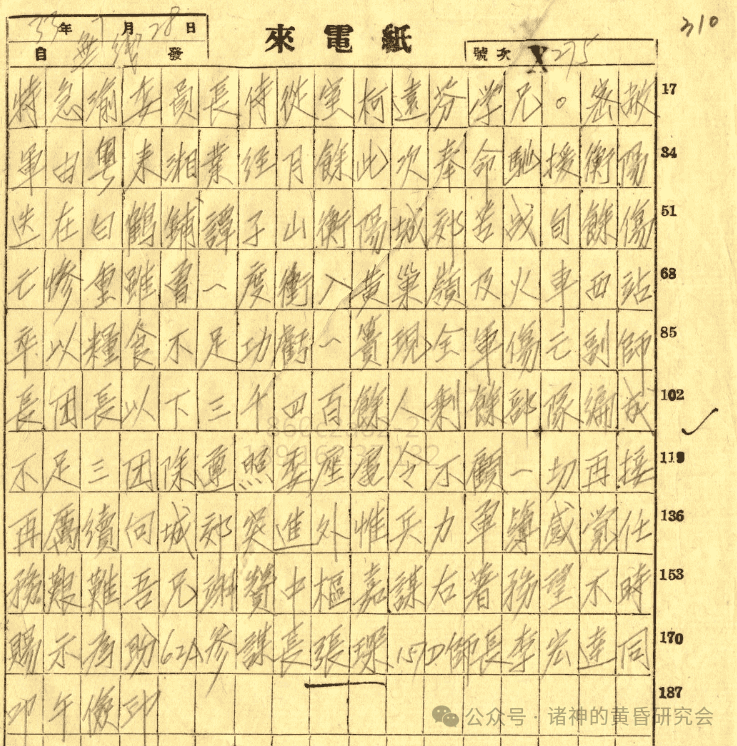 310
33年7月28日
自 發
來電紙
號次 X275
特急渝委員長侍從室柯遠芬學兄。密敝 17
軍由粵來湘業經月餘此次奉命馳援衡陽 34
迭在白鶴鋪譚子山衡陽城郊苦战旬餘傷 51
亡惨重雖曾一度衝入黄巢嶺及火車西站 68
卒以糧食不足功虧一簣現全軍傷亡副師 85
長团長以下三千四百餘人剩餘部隊編成 102
不足三团除遵照委座屡令不顧一切再接 119
再厲續向城郊突進外惟兵力單薄感覺任 136
務艱難吾兄翊贊中樞嘉謀右著務望不時 153
賜示為盼62A參謀長張琛157D師長李宏達同 170
叩午儉印 187
公众号·诸神的黄昏研究会